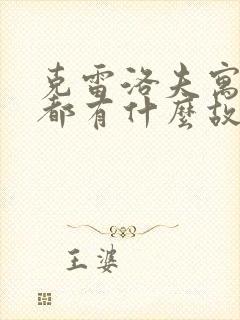 克雷洛夫寓
都有什麼故
王婆